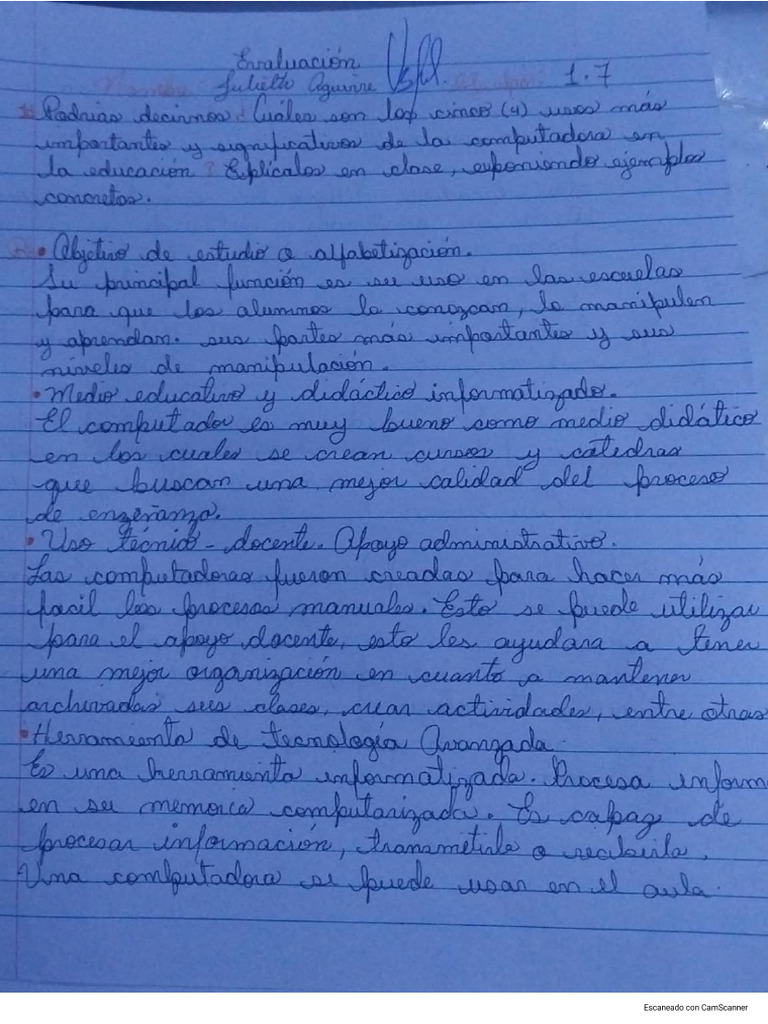 Evaluación
Julieth Aguirre 1.7
Podrías decirnos ¿Cuáles son los cinco (4) usos más
importantes y significativos de la computadora en
la educación? Explícalos en clase, exponiendo ejemplos
concretos.
• Objetivo de estudio o alfabetización.
Su principal función es su uso en las escuelas
para que los alumnos la conozcan, la manipulen
y aprendan. sus partes más importantes y sus
niveles de manipulación.
• Medio educativo y didáctico informatizado.
El computador es muy bueno como medio didático
en los cuales se crean cursos y catedras
que buscan una mejor calidad del proceso
de enzeñanza.
• Uso técnico - docente. Apoyo administrativo.
Las computadoras fueron creadas para hacer más
facil los procesos manuales. Esto se puede utilizar
para el apoyo docente, esto les ayudara a tener
una mejor organización en cuanto a mantener
archivadas sus clases, crear actividades, entre otras
• Herramienta de tecnología Avanzada
Es una herramienta informatizada. Procesa inform
en su memoria computarizada. Es capaz de
procesar información, transmetirla o recibirla.
Una computadora se puede usar en el aula.
Escaneado con CamScanner